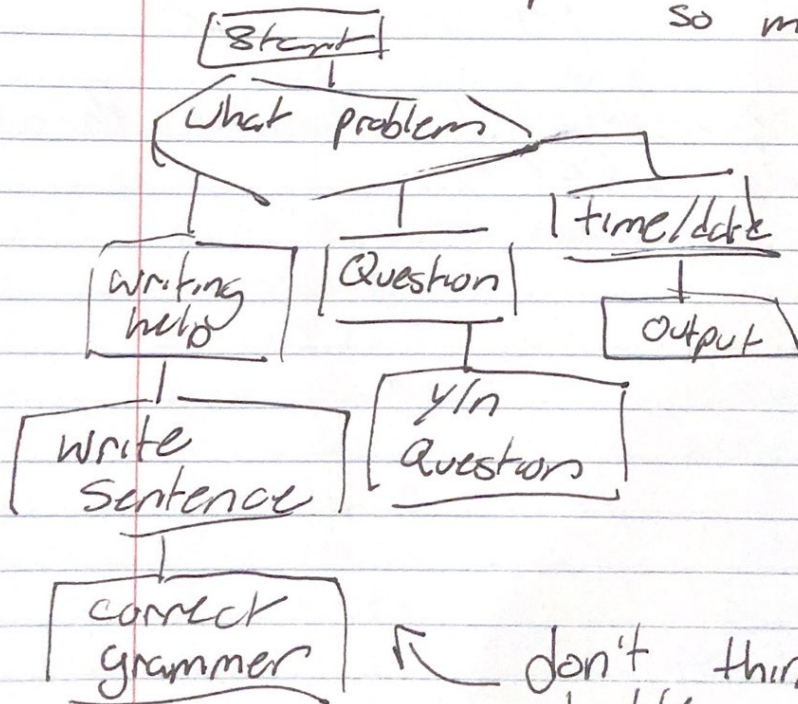 so m
Start
what problem
time/date
writing
help
Question
output
y/n
Question
write
sentence
correct
grammer
don't thin